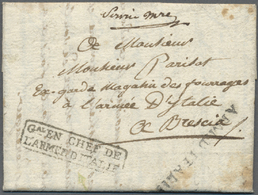 A Monsieur
Monsieur Parisot
Ex-garde Magasin des fourrages
à l'armée D'Italie
A Brescia
GAL EN CHEF DE
L'ARMEE D'ITALIE
ARM. D'ITALIE